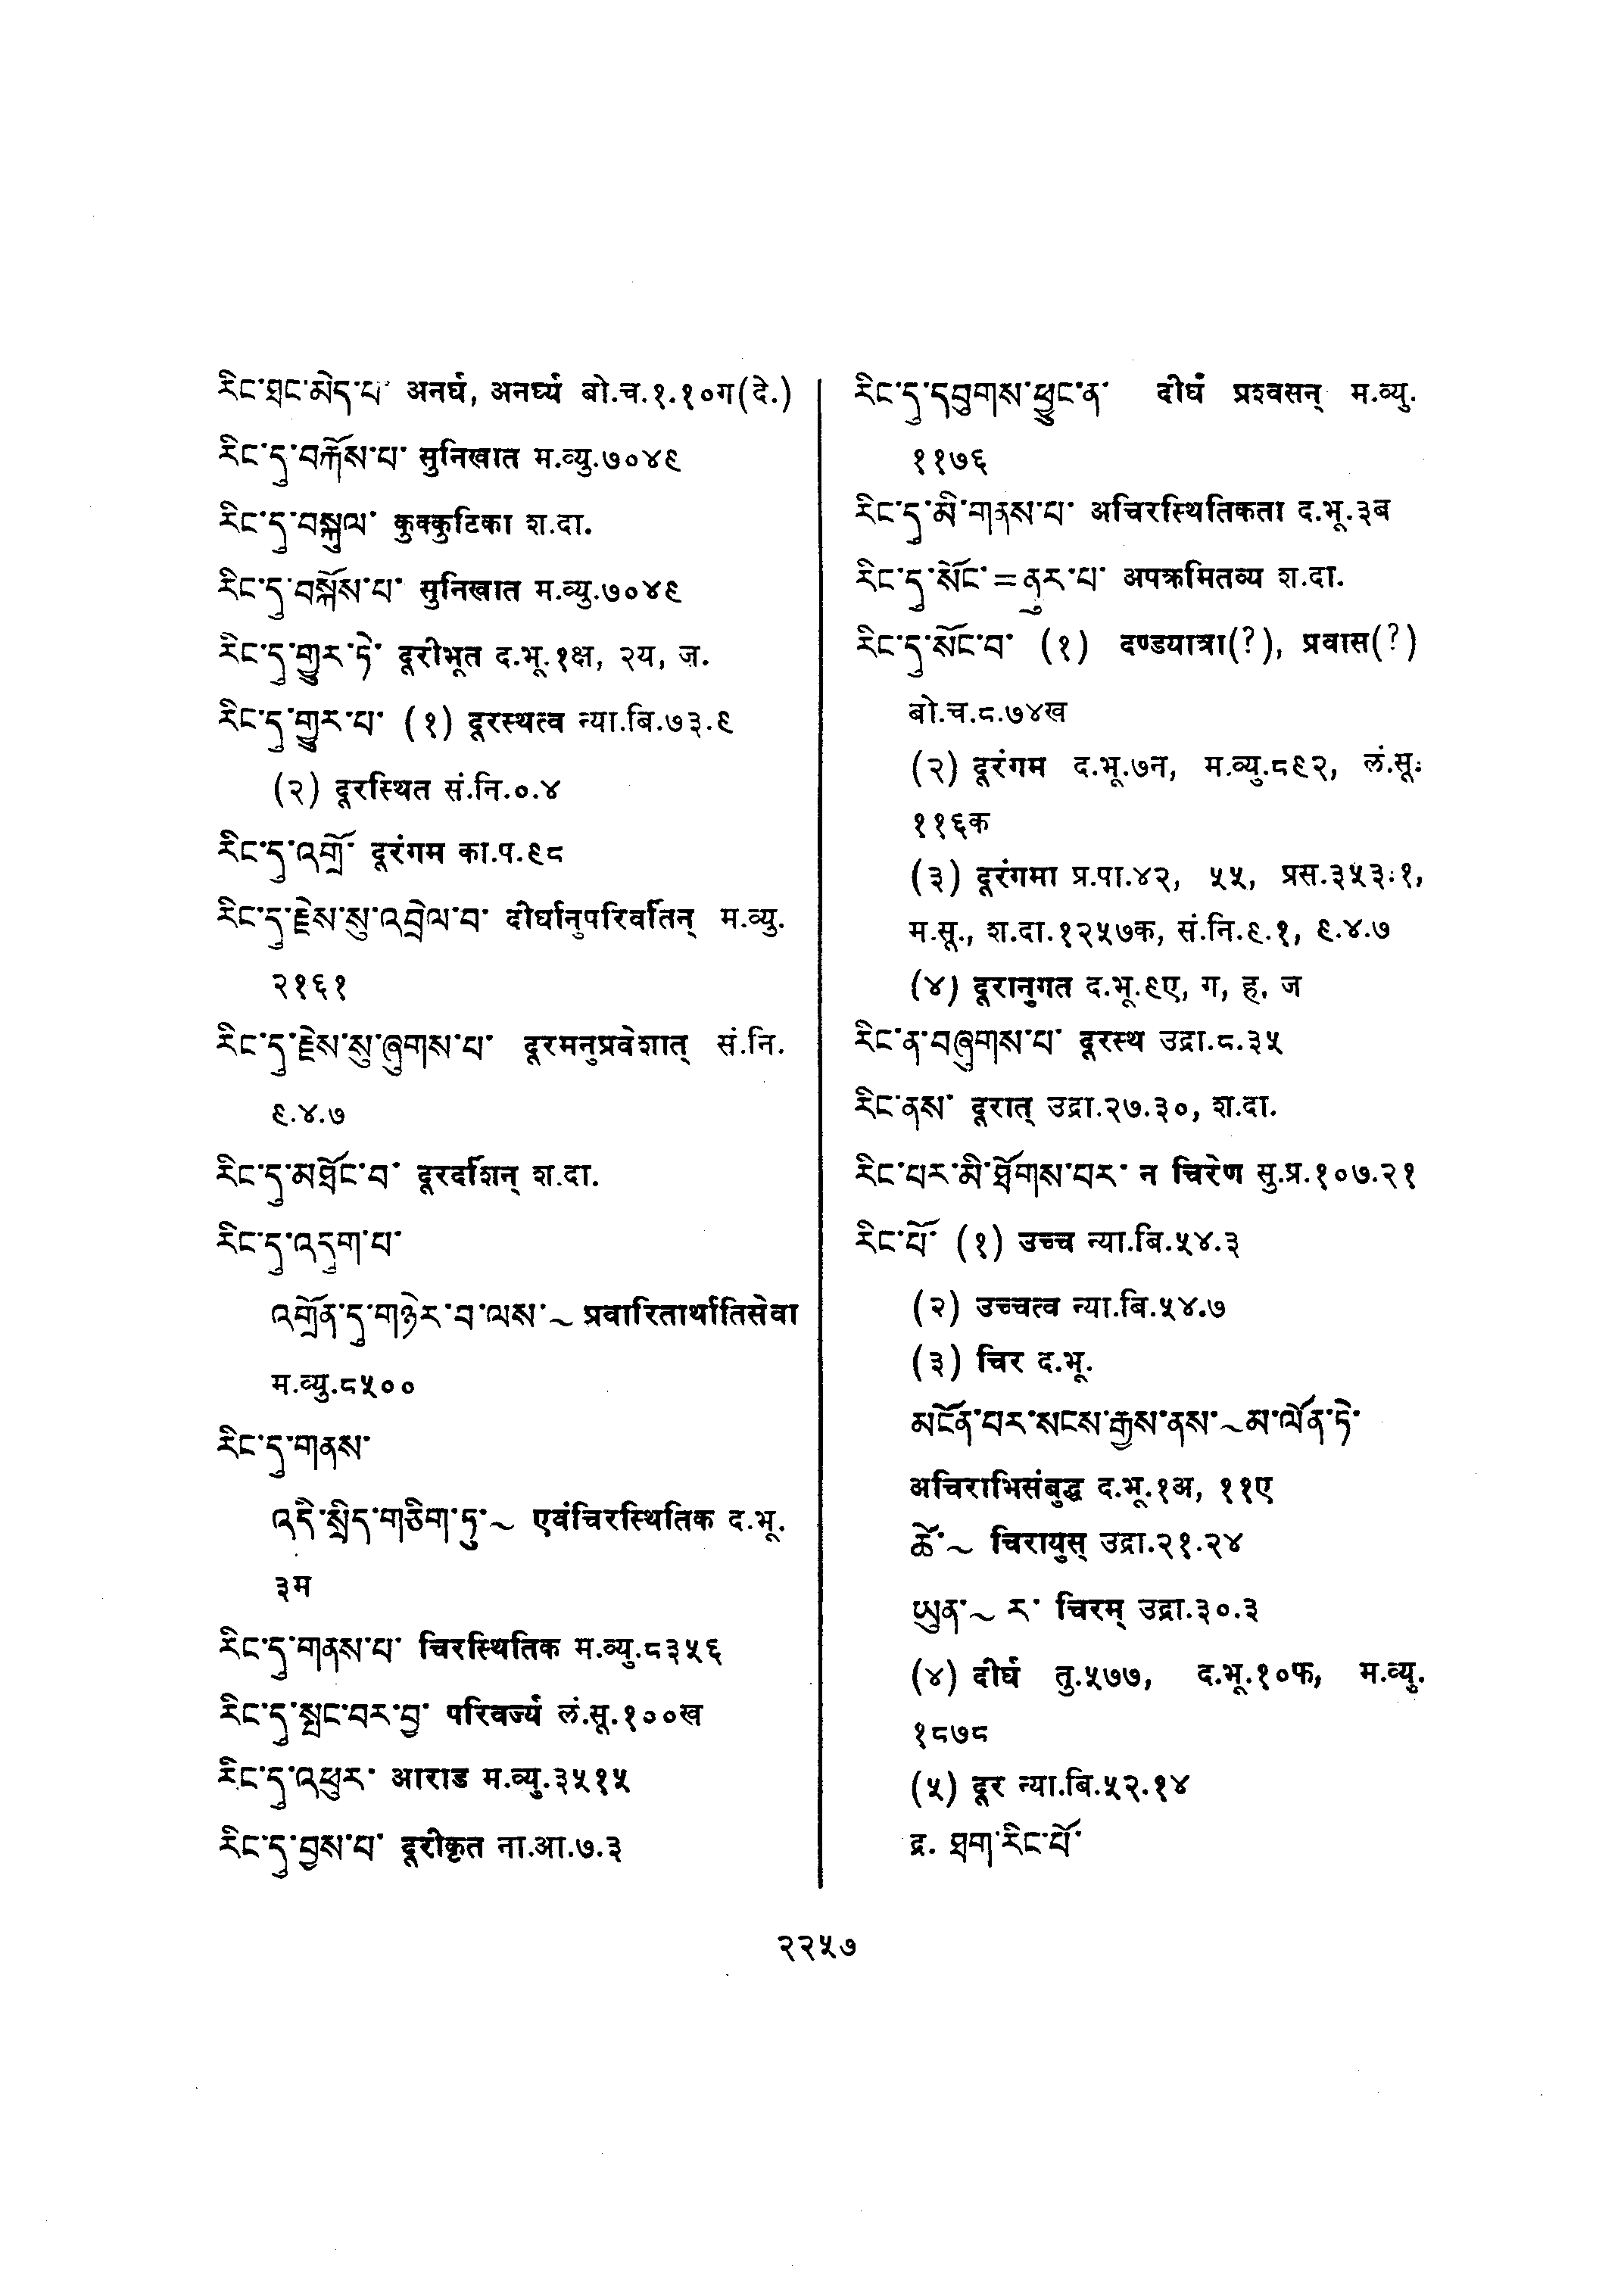 རིང་ཐང་མེད་པ་ अनर्घ, अनर्घ्य बो.च.१.१०ग(दे.)
རིང་དུ་བརྐོས་པ་ सुनिखात म.व्यु.७०४९
རིང་དུ་བསྐུལ་ कुक्कुटिका श.दा.
རིང་དུ་བསྐོས་པ་ सुनिखात म.व्यु.७०४९
རིང་དུ་གྱུར་ཏེ་ दूरीभूत द.भू.१क्ष, २य, ज.
རིང་དུ་གྱུར་པ་ (१) दूरस्थत्व न्या.बि.७३.९
(२) दूरस्थित सं.नि.०.४
རིང་དུ་འགྲོ་ दूरंगम का.प.९८
རིང་དུ་རྗེས་སུ་འབྲེལ་བ་ दीर्घानुपरिवर्तिन् म.व्यु.
२१६१
རིང་དུ་རྗེས་སུ་ཞུགས་པ་ दूरमनुप्रवेशात् सं.नि.
९.४.७
རིང་དུ་མཐོང་བ་ दूरदर्शिन् श.दा.
རིང་དུ་འདུག་པ་
འགྲོན་དུ་གཉེར་བ་ལས་~ प्रवारितार्थातिसेवा
म.व्यु.८५००
རིང་དུ་གནས་
འདི་སྲིད་གཅིག་ཏུ་~ एवंचिरस्थितिक द.भू.
३म
རིང་དུ་གནས་པ་ चिरस्थितिक म.व्यु.८३५६
རིང་དུ་སྤང་བར་བྱ་ परिवर्ज्य लं.सू.१००ख
རིང་དུ་འཕུར་ आराड म.व्यु.३५१५
རིང་དུ་བྱས་པ་ दूरीकृत ना.आ.७.३
རིང་དུ་དབུགས་ཕྱུང་ན་ दीर्घं प्रश्वसन् म.व्यु.
११७६
རིང་དུ་མི་གནས་པ་ अचिरस्थितिकता द.भू.३ब
རིང་དུ་སོང་=ནུར་པ་ अपक्रमितव्य श.दा.
རིང་དུ་སོང་བ་ (१) दण्डयात्रा(?), प्रवास(?)
बो.च.८.७४ख
(२) दूरंगम द.भू.७न, म.व्यु.८९२, लं.सू.
११६क
(३) दूरंगमा प्र.पा.४२, ५५, प्रस.३५३.१,
म.सू., श.दा.१२५७क, सं.नि.९.१, ९.४.७
(४) दूरानुगत द.भू.९ए, ग, ह, ज
རིང་ན་བཞུགས་པ་ दूरस्थ उद्रा.८.३५
རིང་ནས་ दूरात् उद्रा.२७.३०, श.दा.
རིང་པར་མི་ཐོགས་པར་ न चिरेण सु.प्र.१०७.२१
རིང་པོ་ (१) उच्च न्या.बि.५४.३
(२) उच्चत्व न्या.बि.५४.७
(३) चिर द.भू.
མངོན་པར་སངས་རྒྱས་ནས་~མ་ལོན་ཏེ་
अचिराभिसंबुद्ध द.भू.१अ, ११ए
ཚེ་~ चिरायुस् उद्रा.२१.२४
ཡུན་~ ར་ चिरम् उद्रा.३०.३
(४) दीर्घ तु.५७७, द.भू.१०फ, म.व्यु.
१८७८
(५) दूर न्या.बि.५२.१४
द्र. ཐག་རིང་པོ་
२२५७